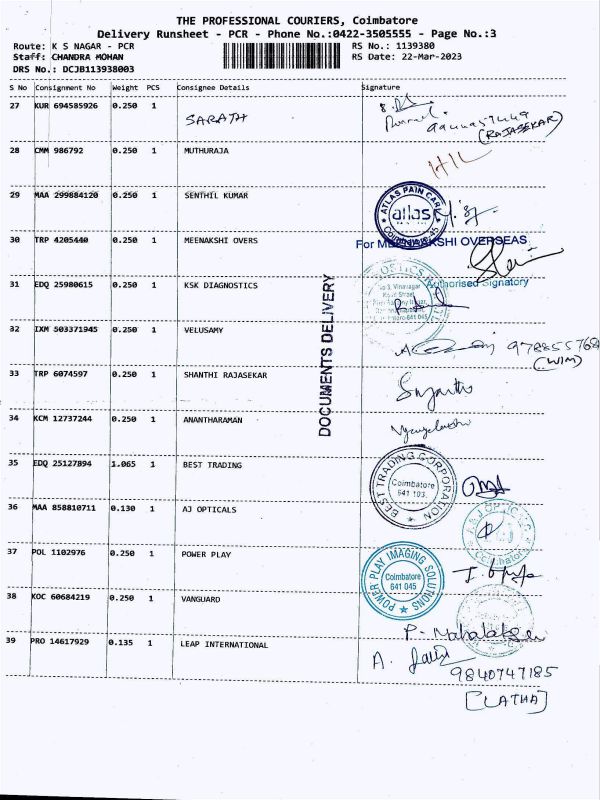 THE PROFESSIONAL COURIERS, Coimbatore
Delivery Runsheet - PCR - Phone No.:0422-3505555 - Page No.:3
Route: K S NAGAR - PCR RS No.: 1139380
Staff: CHANDRA MOHAN RS Date: 22-Mar-2023
DRS No.: DCJB113938003
S No Consignment No Weight PCS Consignee Details Signature
27 KUR 694585926 0.250 1 SARATH
(RAJASEKAR)
28 CMM 986792 0.250 1 MUTHURAJA
29 MAA 299884120 0.250 1 SENTHIL KUMAR
ATLAS PAIN CARE
atlas
30 TRP 4205440 0.250 1 MEENAKSHI OVERS
For MEENAAKSHI OVERSEAS
Authorised Signatory
31 EDQ 25980615 0.250 1 KSK DIAGNOSTICS
DOCUMENTS DELIVERY
32 IXM 503371945 0.250 1 VELUSAMY
33 TRP 6074597 0.250 1 SHANTHI RAJASEKAR
34 KCM 12737244 0.250 1 ANANTHARAMAN
35 EDQ 25127894 1.065 1 BEST TRADING
BEST TRADING CORPORATION
Coimbatore
641 103.
36 MAA 858810711 0.130 1 AJ OPTICALS
37 POL 1102976 0.250 1 POWER PLAY
POWER PLAY IMAGING SOLUTIONS
Coimbatore
641 045
38 KOC 60684219 0.250 1 VANGUARD
39 PRO 14617929 0.135 1 LEAP INTERNATIONAL
9840747185
[LATHA]